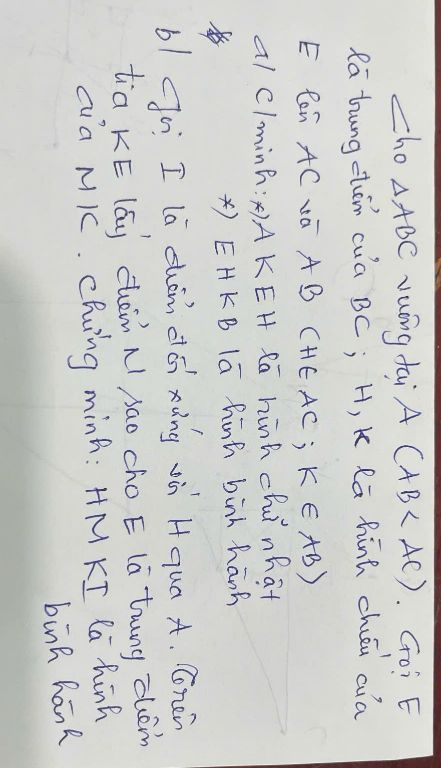 Cho ΔABC vuông tại A (AB < AC). Gọi E
là trung điểm của BC; H, K là hình chiếu của
E lên AC và AB (H∈AC; K∈AB)
a/ C/minh: *) AKEH là hình chữ nhật
*) EHKB là hình bình hành
b/ Gọi I là điểm đối xứng với H qua A. Trên
tia KE lấy điểm N sao cho E là trung điểm
của MK. Chứng minh: HMKI là hình
bình hành